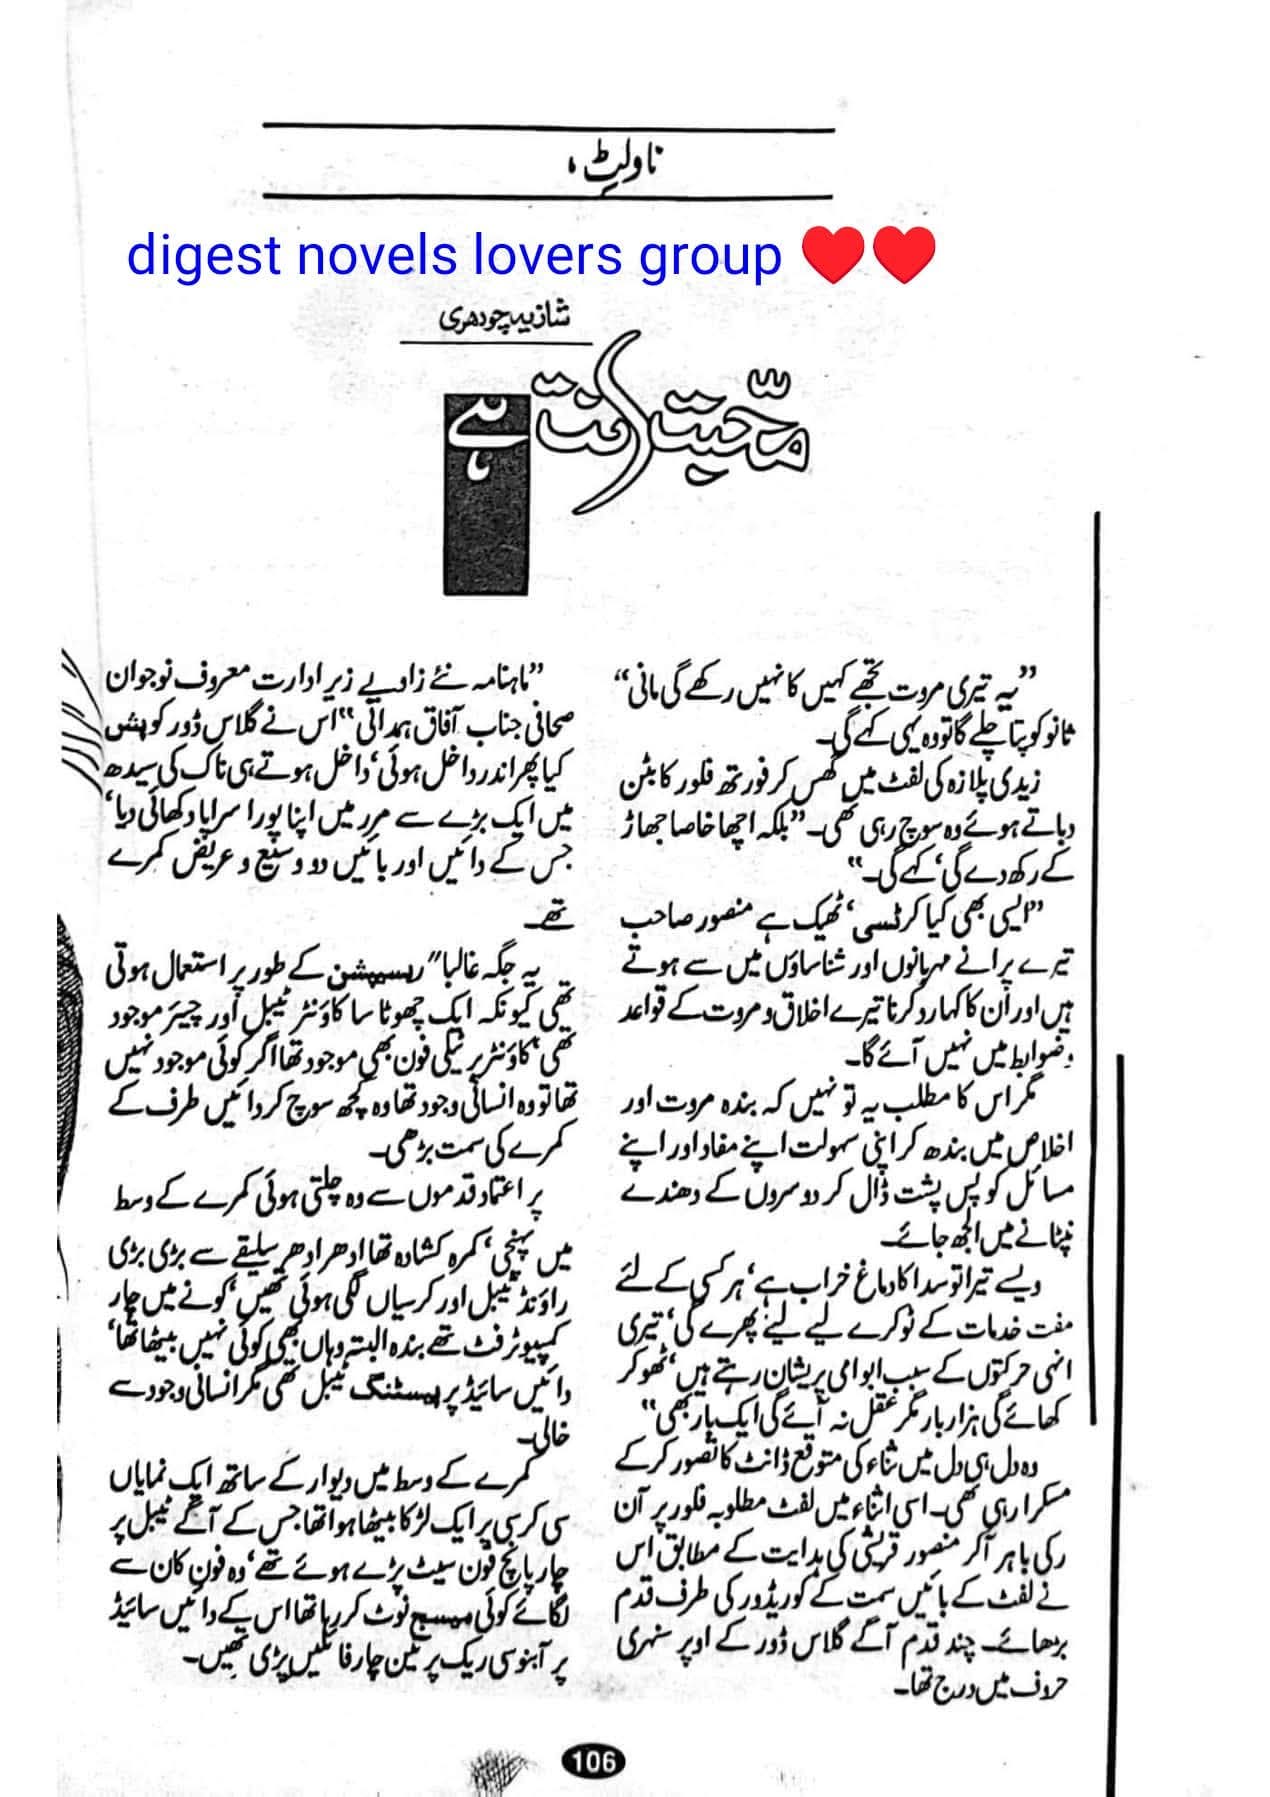 ناولٹ
digest novels lovers group ❤️❤️
شازیہ چودھری
محبت امانت ہے
”یہ تیری مروت تجھے کہیں کا نہیں رکھے گی مانی“
ثانو کو پتا چلے گا تو وہ یہی کہے گی۔
زیدی پلازہ کی لفٹ میں گھس کر فورتھ فلور کا بٹن
دباتے ہوئے وہ سوچ رہی تھی۔ ”بلکہ اچھا خاصا جھاڑ
کے رکھ دے گی‘ کہے گی۔“
”ایسی بھی کیا کرٹسی‘ ٹھیک ہے منصور صاحب
تیرے پرانے مہربانوں اور شناساؤں میں سے ہوتے
ہیں اور ان کا کہا رد کرنا تیرے اخلاق و مروت کے قواعد
و ضوابط میں نہیں آئے گا۔
مگر اس کا مطلب یہ تو نہیں کہ بندہ مروت اور
اخلاص میں بندھ کر اپنی سہولت اپنے مفاد اور اپنے
مسائل کو پس پشت ڈال کر دوسروں کے دھندے
نپٹانے میں الجھ جائے۔
ویسے تیرا تو سدا کا دماغ خراب ہے‘ ہر کسی کے لئے
مفت خدمات کے ٹوکرے لیے لیے پھرے گی‘ تیری
انہی حرکتوں کے سبب ابو امی پریشان رہتے ہیں‘ ٹھوکر
کھائے گی ہزار بار مگر عقل نہ آئے گی ایک بار بھی“
وہ دل ہی دل میں ثناء کی متوقع ڈانٹ کا تصور کر کے
مسکرا رہی تھی۔ اسی اثناء میں لفٹ مطلوبہ فلور پر آن
رکی باہر آکر منصور قریشی کی ہدایت کے مطابق اس
نے لفٹ کے بائیں سمت کے کوریڈور کی طرف قدم
بڑھائے۔ چند قدم آگے گلاس ڈور کے اوپر سنہری
حروف میں درج تھا۔
”ماہنامہ نئے زاویے زیر ادارت معروف نوجوان
صحافی جناب آفاق ہمدانی“ اس نے گلاس ڈور کو پش
کیا پھر اندر داخل ہوئی‘ داخل ہوتے ہی ناک کی سیدھ
میں ایک بڑے سے مرر میں اپنا پورا سراپا دکھائی دیا‘
جس کے دائیں اور بائیں دو وسیع و عریض کمرے
تھے۔
یہ جگہ غالبا“ ریسپشن کے طور پر استعمال ہوتی
تھی کیونکہ ایک چھوٹا سا کاؤنٹر ٹیبل اور چیئر موجود
تھی‘ کاؤنٹر پر ٹیلی فون بھی موجود تھا اگر کوئی موجود نہیں
تھا تو وہ انسانی وجود تھا وہ کچھ سوچ کر دائیں طرف کے
کمرے کی سمت بڑھی۔
پر اعتماد قدموں سے وہ چلتی ہوئی کمرے کے وسط
میں پہنچی‘ کمرہ کشادہ تھا ادھر ادھر سلیقے سے بڑی بڑی
راؤنڈ ٹیبل اور کرسیاں لگی ہوئی تھیں‘ کونے میں چار
کمپیوٹر فٹ تھے بندہ البتہ وہاں بھی کوئی نہیں بیٹھا تھا‘
دائیں سائیڈ پر پیسٹنگ ٹیبل تھی مگر انسانی وجود سے
خالی۔
کمرے کے وسط میں دیوار کے ساتھ ایک نمایاں
سی کرسی پر ایک لڑکا بیٹھا ہوا تھا جس کے آگے ٹیبل پر
چار پانچ فون سیٹ پڑے ہوئے تھے‘ وہ فون کان سے
لگائے کوئی میسج نوٹ کر رہا تھا اس کے دائیں سائیڈ
پر آبنوسی ریک پر تین چار فائلیں پڑی تھیں۔
106